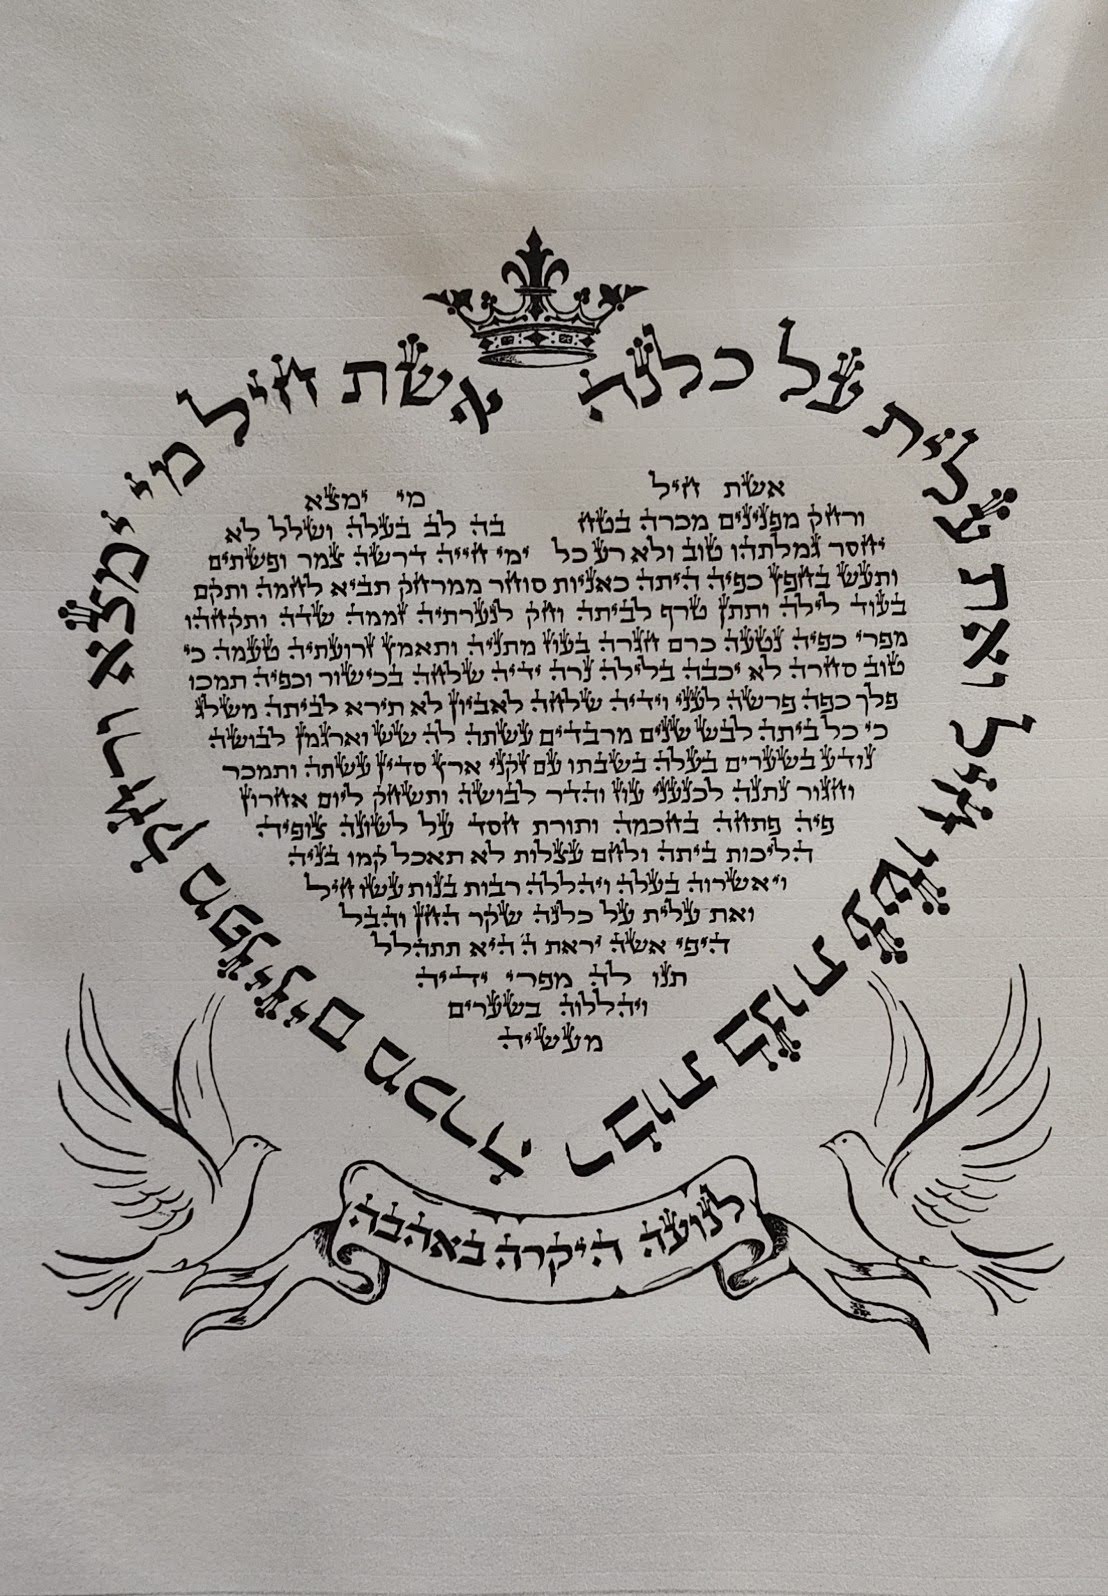 אשת חיל מי ימצא ורחק מפנינים מכרה
רבות בנות עשו חיל ואת עלית על כלנה
אשת חיל מי ימצא
ורחק מפנינים מכרה בטח בה לב בעלה ושלל לא
יחסר גמלתהו טוב ולא רע כל ימי חייה דרשה צמר ופשתים
ותעש בחפץ כפיה היתה כאניות סוחר ממרחק תביא לחמה ותקם
בעוד לילה ותתן טרף לביתה וחק לנערתיה זממה שדה ותקחהו
מפרי כפיה נטעה כרם חגרה בעוז מתניה ותאמץ זרועתיה טעמה כי
טוב סחרה לא יכבה בלילה נרה ידיה שלחה בכישור וכפיה תמכו
פלך כפה פרשה לעני וידיה שלחה לאביון לא תירא לביתה משלג
כי כל ביתה לבש שנים מרבדים עשתה לה שש וארגמן לבושה
נודע בשערים בעלה בשבתו עם זקני ארץ סדין עשתה ותמכר
וחגור נתנה לכנעני עוז והדר לבושה ותשחק ליום אחרון
פיה פתחה בחכמה ותורת חסד על לשונה צופיה
הליכות ביתה ולחם עצלות לא תאכל קמו בניה
ויאשרוה בעלה ויהללה רבות בנות עשו חיל
ואת עלית על כלנה שקר החן והבל
היפי אשה יראת ה היא תתהלל
תנו לה מפרי ידיה
ויהללוה בשערים
מעשיה
לנועה היקרה באהבה